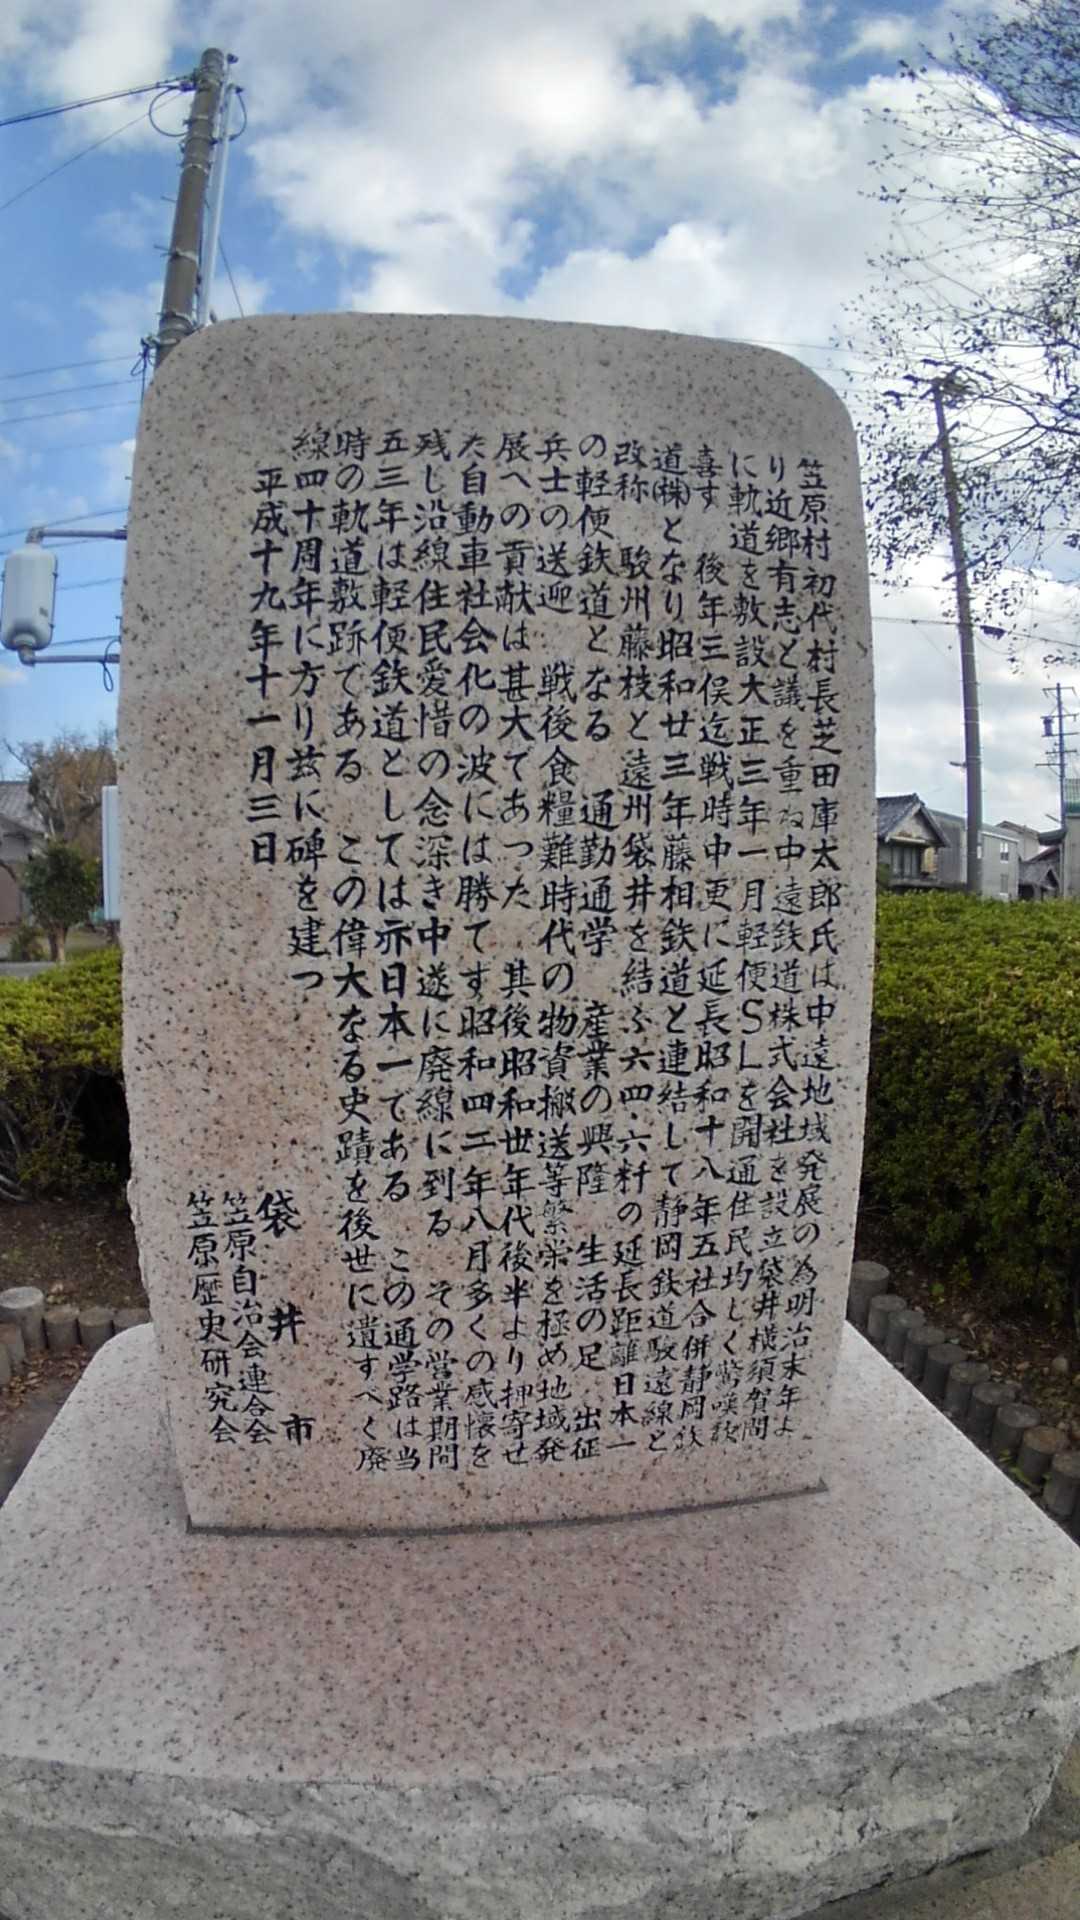 笠原村初代村長芝田庫太郎氏は中遠地域発展の為明治末年よ
り近郷有志と議を重ね中遠鉄道株式会社を設立袋井横須賀間
に軌道を敷設大正三年一月軽便SLを開通住民均しく驚嘆歓
喜す 後年三俣迄戦時中更に延長昭和十八年五社合併静岡鉄
道㈱となり昭和廿三年藤相鉄道と連結して静岡鉄道駿遠線と
改称 駿州藤枝と遠州袋井を結ぶ六四・六粁の延長距離日本一
の軽便鉄道となる 通勤通学 産業の興隆 生活の足 出征
兵士の送迎 戦後食糧難時代の物資搬送等繁栄を極め地域発
展への貢献は甚大であった 其後昭和丗年代後半より押寄せ
た自動車社会化の波には勝てず昭和四二年八月多くの感懐を
残し沿線住民愛惜の念深き中遂に廃線に到る その営業期間
五三年は軽便鉄道としては亦日本一である この通学路は当
時の軌道敷跡である この偉大なる史蹟を後世に遺すべく廃
線四十周年に方り茲に碑を建つ
平成十九年十一月三日
袋井市
笠原自治会連合会
笠原歴史研究会